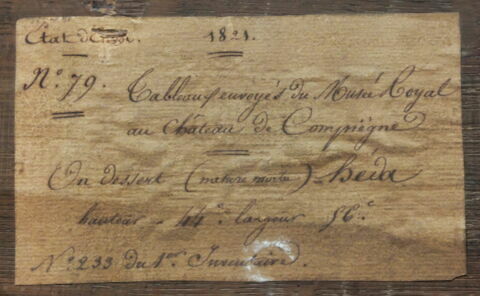 État d'Envoi. 1821.
N.° 79. Tableaux envoyés du Musée Royal
au Château de Compiègne
Un dessert (nature morte) - héda
hauteur - 44.c largeur 56.c
N.° 233 du 1.er Inventaire.